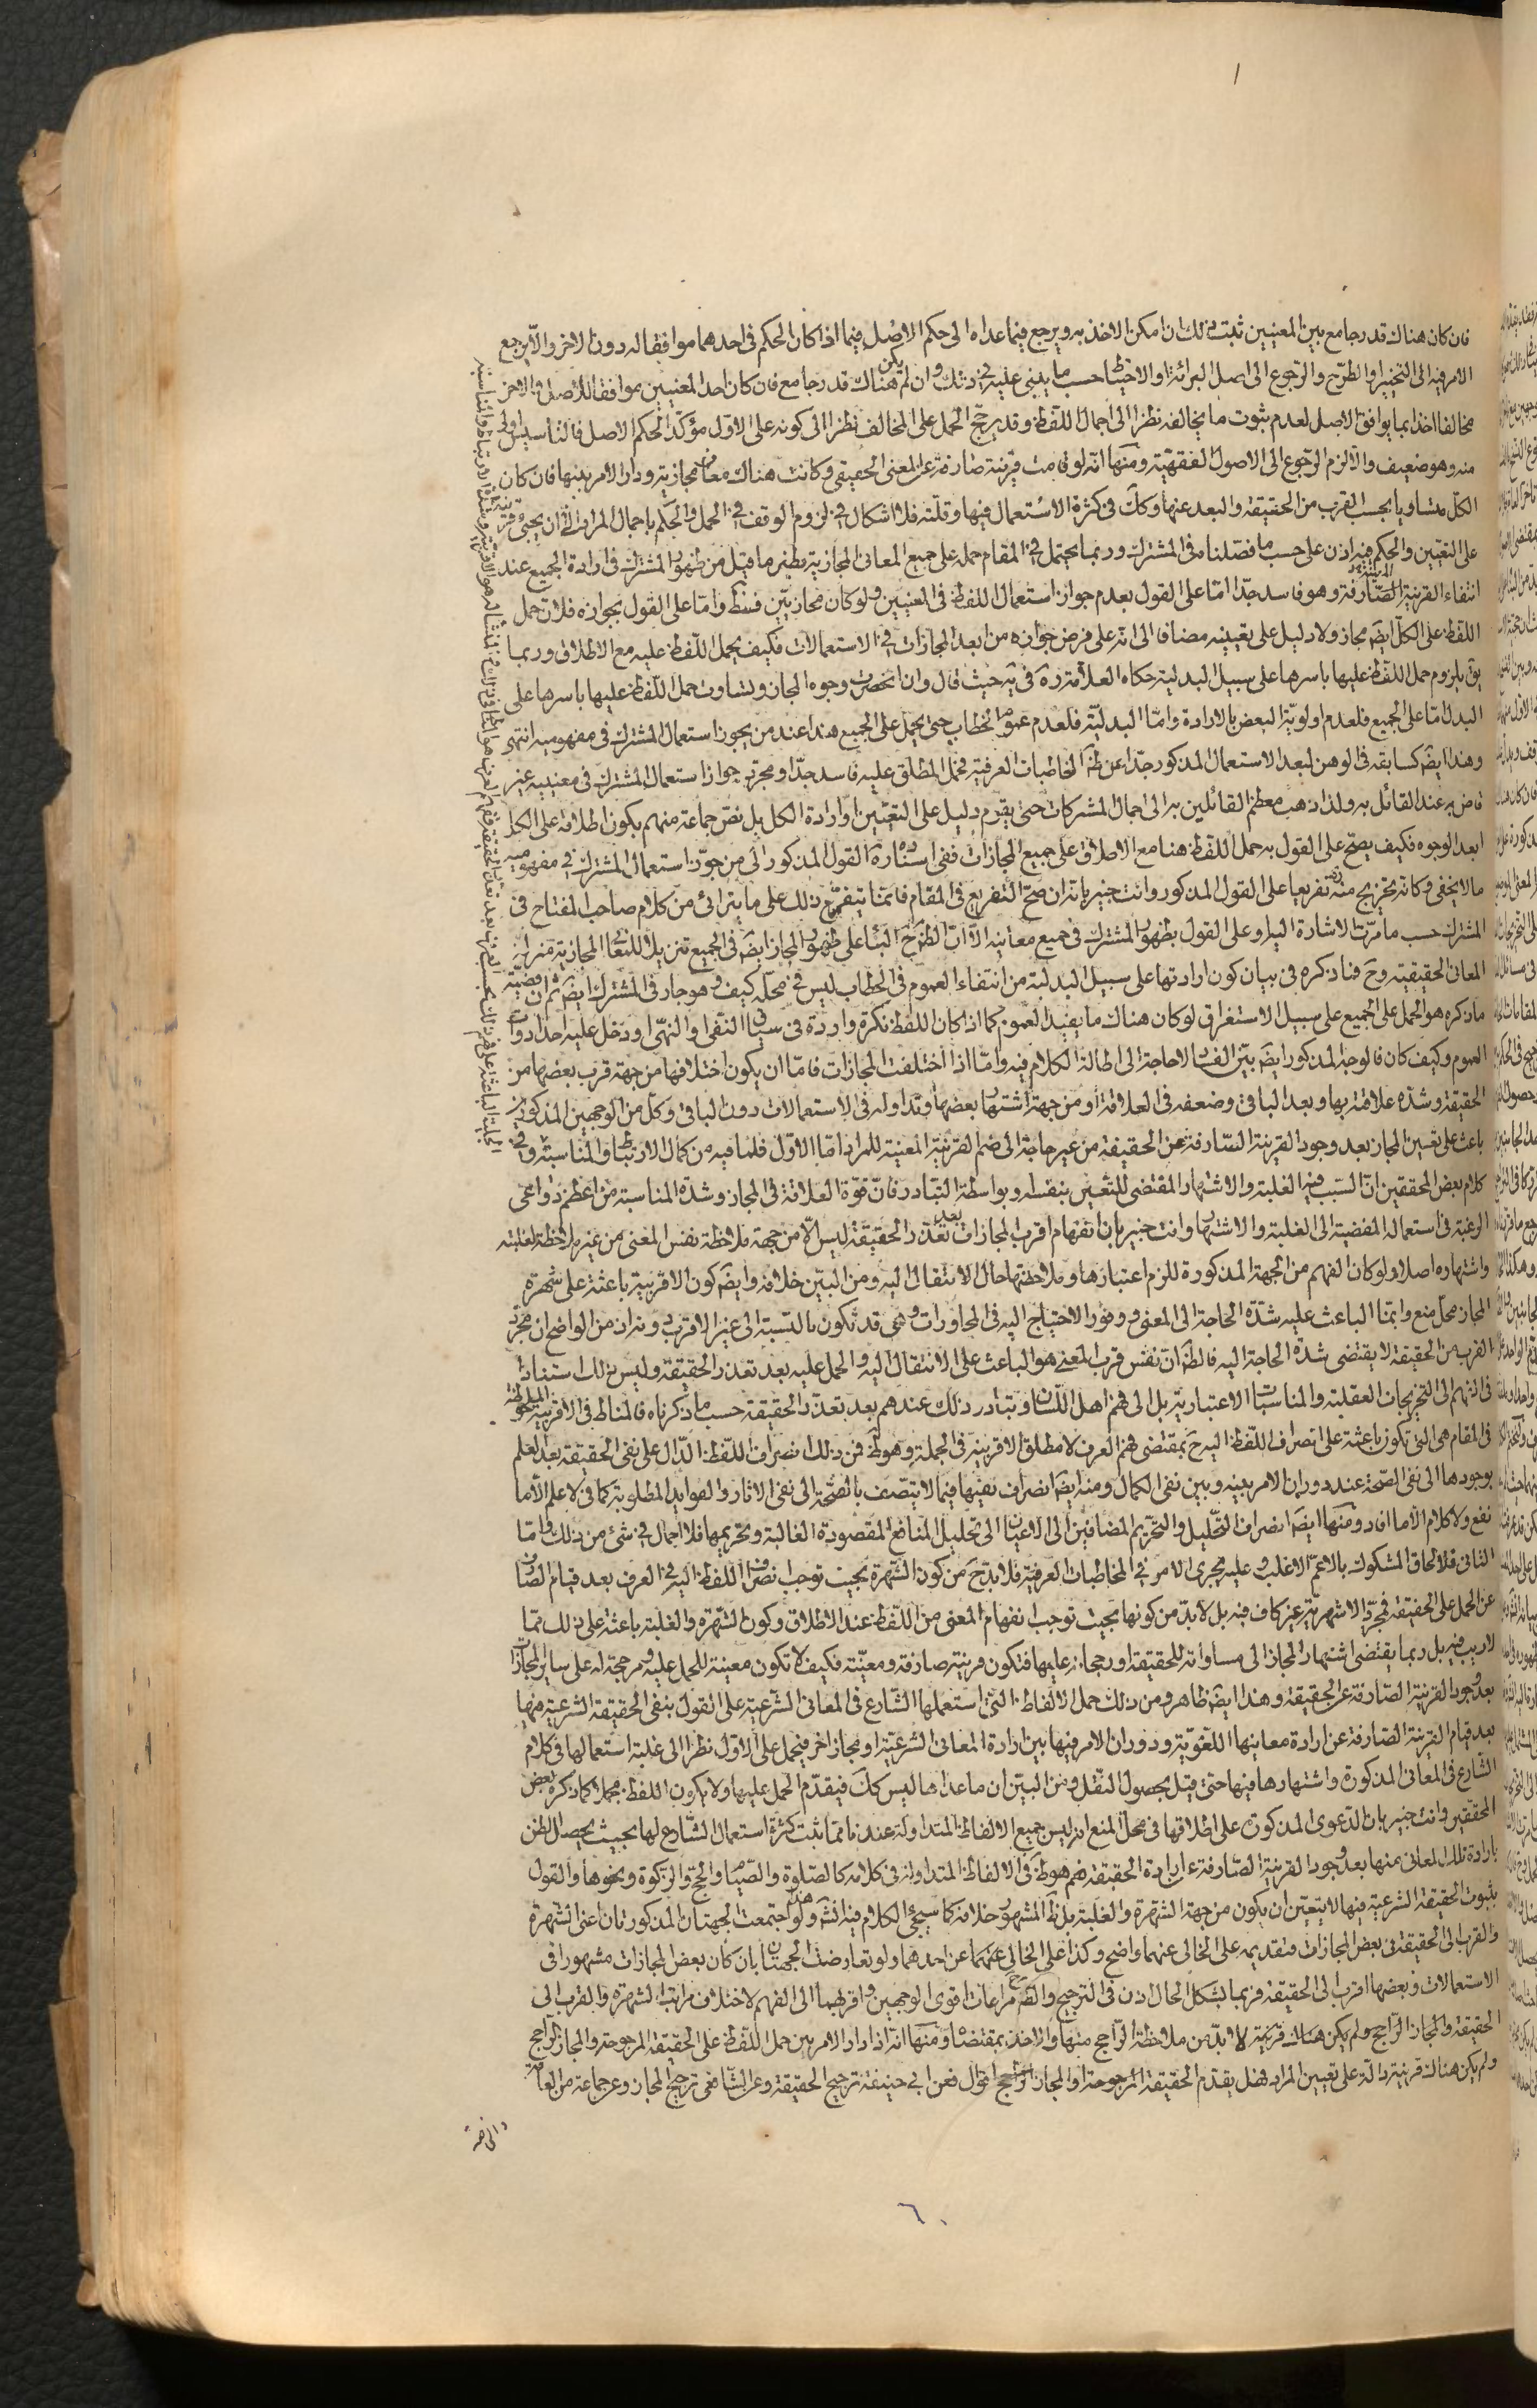 فان كان هناك قدر جامع بين المعنيين ثبت ذلك ان امكن الاخذ به ويرجع فيما عداه الى حكم الاصل فيما اذا كان الحكم فى احدهما موافقا له دون الاخر والا يرجع
الامر فيه الى التخيير او الطرح والرجوع الى اصل البرائة او الاحتياط حسب ما يبنى عليه فى ذلك وان لم يكن هناك قدر جامع فان كان احد المعنيين موافقا للاصل والاخر
مخالفا اخذ بما يوافق الاصل لعدم ثبوت ما يخالفه نظرا الى اجمال اللفظ وقد يرجح الحمل على المخالف نظرا الى كونه على الاول مؤكدا لحكم الاصل فالتاسيس اولى
منه وهو ضعيف والا لزم الرجوع الى الاصول الفقهية ومنها انه لو قامت قرينة صارفة عن المعنى الحقيقى وكانت هناك معان مجازية ودار الامر بينها فان كان
الكل متساويا بحسب القرب من الحقيقة والبعد عنها وكك فى كثرة الاستعمال فيها وقلته فلا اشكال فى لزوم الوقف فى الحمل والحكم باجمال المراد الى ان يجيئ قرينة
على التعيين والحكم فيه اذن على حسب ما فصلناه فى المشترك وربما يحتمل فى المقام حمله على جميع المعانى المجازية نظير ما قيل من ظهور المشترك فى ارادة الجميع عند
انتفاء القرينة الصارفة وهو فاسد جدا اما على القول بعدم جواز استعمال اللفظ فى المعنيين ولو كان مجازيين فظ واما على القول بجوازه فلان حمل
اللفظ على الكل ايضه مجاز ولا دليل على تعيينه مضافا الى انه على فرض جوازه من ابعد المجازات فى الاستعمالات فكيف يحمل اللفظ عليه مع الاطلاق وربما
يق بلزوم حمل اللفظ عليها باسرها على سبيل البدلية حكاه العلامة ره فى يه حيث قال وان انحصرت وجوه المجاز وتساوت حمل اللفظ عليها باسرها على
البدل اما على الجميع فلعدم اولوية البعض بالارادة واما البدلية فلعدم عموم الخطاب حتى يحمل على الجميع هذا عند من يجوز استعمال المشترك فى مفهوميه انتهى
وهذا ايضه كسابقه فى الوهن لبعد الاستعمال المذكور جدا عن ظ المخاطبات العرفية فحمل المطلق عليه فاسد جدا ومجرد جواز استعمال المشترك فى معنييه غير
قاض به عند القائل به ولذا ذهب معظم القائلين به الى اجمال المشتركات حتى يقوم دليل على التعيين او ارادة الكل بل نص جماعة منهم بكون اطلاقه على الكل
ابعد الوجوه فكيف يصح على القول به حمل اللفظ هنا مع الاطلاق على جميع المجازات ففى اسناده ره القول المذكور الى من جوز استعمال المشترك فى مفهوميه
ما لا يخفى وكانه تخريج منه ره تفريعا على القول المذكور وانت خبير بانه ان صح التفريع فى المقام فانما يتفرع ذلك على ما يترائى من كلام صاحب المفتاح فى
المشترك حسب ما مرت الاشارة اليه او على القول بظهور المشترك فى جميع معانيه الا ان الظ ح البناء على ظهور المجاز ايضه فى الجميع تنزيلا للمعانى المجازية منزلة
المعانى الحقيقية وح فما ذكره فى بيان كون ارادتها على سبيل البدلية من انتفاء العموم فى الخطاب ليس فى محله كيف وهو جار فى المشترك ايضه ثم ان قضية
ما ذكره هو الحمل على الجميع على سبيل الاستغراق لو كان هناك ما يفيد العموم كما اذا كان اللفظ نكرة واردة فى سياق النفى او النهى او دخل عليه احد ادوات
العموم وكيف كان فالوجه المذكور ايضه بين الفساد لا حاجة الى اطالة الكلام فيه واما اذا اختلفت المجازات فاما ان يكون اختلافها من جهة قرب بعضها من
الحقيقة وشدة علاقته بها وبعد الباقى وضعفه فى العلاقة او من جهة اشتهار بعضها وتداوله فى الاستعمالات دون الباقى وكل من الوجهين المذكورين
باعث على تعيين المجاز بعد وجود القرينة الصارفة عن الحقيقة من غير حاجة الى ضم القرينة المعينة للمراد اما الاول فلما فيه من كمال الارتباط والمناسبة وفى
كلام بعض المحققين ان السبب فيه الغلبة والاشتهار المقتضى للتعيين بنفسه وبواسطة التبادر فان قوة العلاقة فى المجاز وشدة المناسبة من اعظم دواعى
الرغبة فى استعماله المفضية الى الغلبة والاشتهار وانت خبير بان انفهام اقرب المجازات بعد تعذر الحقيقة ليس الا من جهة ملاحظة نفس المعنى من غير ملاحظة لغلبته
واشتهاره اصلا ولو كان الفهم من الجهة المذكورة للزم اعتبارها وملاحظتها حال الانتقال اليه ومن البين خلافه وايضه كون الاقربية باعثة على شهرة
المجاز محل منع وانما الباعث عليه شدة الحاجة الى المعنى ووفور الاحتياج اليه فى المحاورات وهى قد تكون بالنسبة الى غير الاقرب دونه اذ من الواضح ان مجرد
القرب من الحقيقة لا يقتضى شدة الحاجة اليه فالظ ان نفس قرب المعنى هو الباعث على الانتقال اليه والحمل عليه بعد تعذر الحقيقة وليس ذلك استنادا
فى الفهم الى التخريجات العقلية والمناسبات الاعتبارية بل الى فهم اهل اللسان وتبادر ذلك عندهم بعد تعذر الحقيقة حسب ما ذكرناه فالمناط فى الاقربية الملحوظة
فى المقام هى التى تكون باعثة على انصراف اللفظ اليه ح بمقتضى فهم العرف لا مطلق الاقربية فى الجملة وهو ظ فمن ذلك انصراف اللفظ الدال على نفى الحقيقة بعد العلم
بوجودها الى نفى الصحة عند دوران الامر بينه وبين نفى الكمال ومنه ايضه انصراف نفيها فيما لا يتصف بالصحة الى نفى الاثار والفوايد المطلوبة كما فى لا علم الا ما
نفع ولا كلام الا ما افاد ومنها ايضه انصراف التحليل والتحريم المضافين الى الاعيان الى تحليل المنافع المقصودة الغالبة وتحريمها فلا اجمال فى شئ من ذلك واما
الثانى فلالحاق المشكوك بالاعم الاغلب وعليه يجرى الامر فى المخاطبات العرفية فلا بد ح من كون الشهرة بحيث توجب انصراف اللفظ اليه فى العرف بعد قيام الصارف
عن الحمل على الحقيقة فمجرد الاشهرية غير كاف فيه بل لا بد من كونها بحيث توجب انفهام المعنى من اللفظ عند الاطلاق وكون الشهرة والغلبة باعثة على ذلك مما
لا ريب فيه بل ربما يقتضى اشتهار المجاز الى مساواته للحقيقة او رجحانه عليها فتكون قرينة صارفة ومعينة فكيف لا تكون معينة للحمل عليه ومرجحة له على ساير المجازات
بعد وجود القرينة الصارفة عن الحقيقة وهذا ايضه ظاهر ومن ذلك حمل الالفاظ التى استعملها الشارع فى المعانى الشرعية على القول بنفى الحقيقة الشرعية منها
بعد قيام القرينة الصارفة عن ارادة معانيها اللغوية ودوران الامر فيها بين ارادة المعانى الشرعية او مجاز اخر فيحمل على الاول نظرا الى غلبة استعمالها فى كلام
الشارع فى المعانى المذكورة واشتهارها فيها حتى قيل بحصول النقل ومن البين ان ما عداها ليس كك فيقدم الحمل عليها ولا يكون اللفظ مجملا كما ذكره بعض
المحققين وانت خبير بان الدعوى المذكورة على اطلاقها فى محل المنع اذ ليس جميع الالفاظ المتداولة عندنا مما ثبت كثرة استعمال الشارع لها بحيث يحصل الظن
بارادة تلك المعانى منها بعد وجود القرينة الصارفة عن ارادة الحقيقة نعم هو ظ فى الالفاظ المتداولة فى كلامه كالصلوة والصيام والحج والزكوة ونحوها والقول
بثبوت الحقيقة الشرعية فيها لا يتعين ان يكون من جهة الشهرة والغلبة بل ظ المشهور خلافه كما سيجيئ الكلام فيه انشه هذا ولو اجتمعت الجهتان المذكورتان اعنى الشهرة
والقرب الى الحقيقة فى بعض المجازات فتقديمه على الخالى عنهما واضح وكذا على الخالى عن احدهما ولو تعارضت الجهتان بان كان بعض المجازات مشهورا فى
الاستعمالات وبعضها اقرب الى الحقيقة فربما يشكل الحال اذن فى الترجيح والظ ح مراعات اقوى الوجهين واقربهما الى الفهم لاختلاف مراتب الشهرة والقرب الى
الحقيقة والمجاز الراجح ولم يكن هناك قرينة لا بد من ملاحظة الراجح منها والاخذ بمقتضاه ومنها انه اذا دار الامر بين حمل اللفظ على الحقيقة المرجوحة والمجاز الراجح
ولم يكن هناك قرينة دالة على تعيين المراد فهل يقدم الحقيقة المرجوحة او المجاز الراجح اقوال فعن ابى حنيفة ترجيح الحقيقة وعن الشافعى ترجيح المجاز وعن جماعة من العامة
٦٠